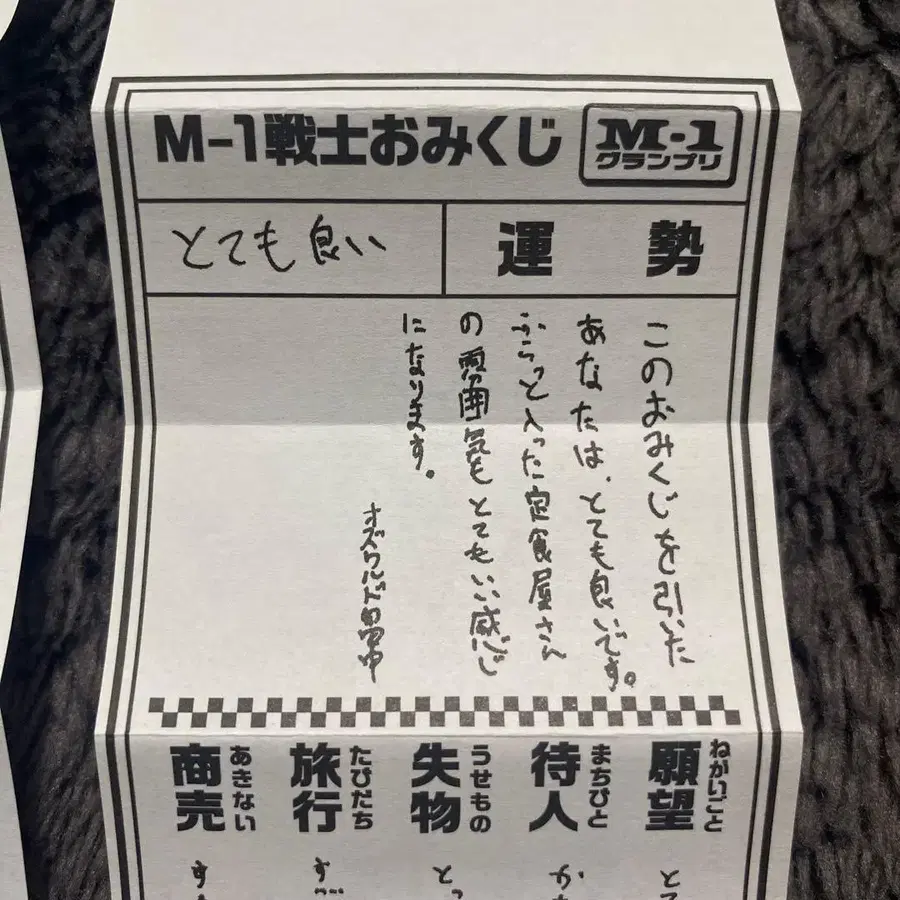 M-1戦士おみくじ
M-1
グランプリ
運勢
とても良い
このおみくじを引いた
あなたは、とても良いです。
ふらっと入った定食屋さん
の雰囲気もとてもいい感じ
になります。
オズワルド畠中
ねがいごと
願望
まちびと
待人
うせもの
失物
たびだち
旅行
あきない
商売